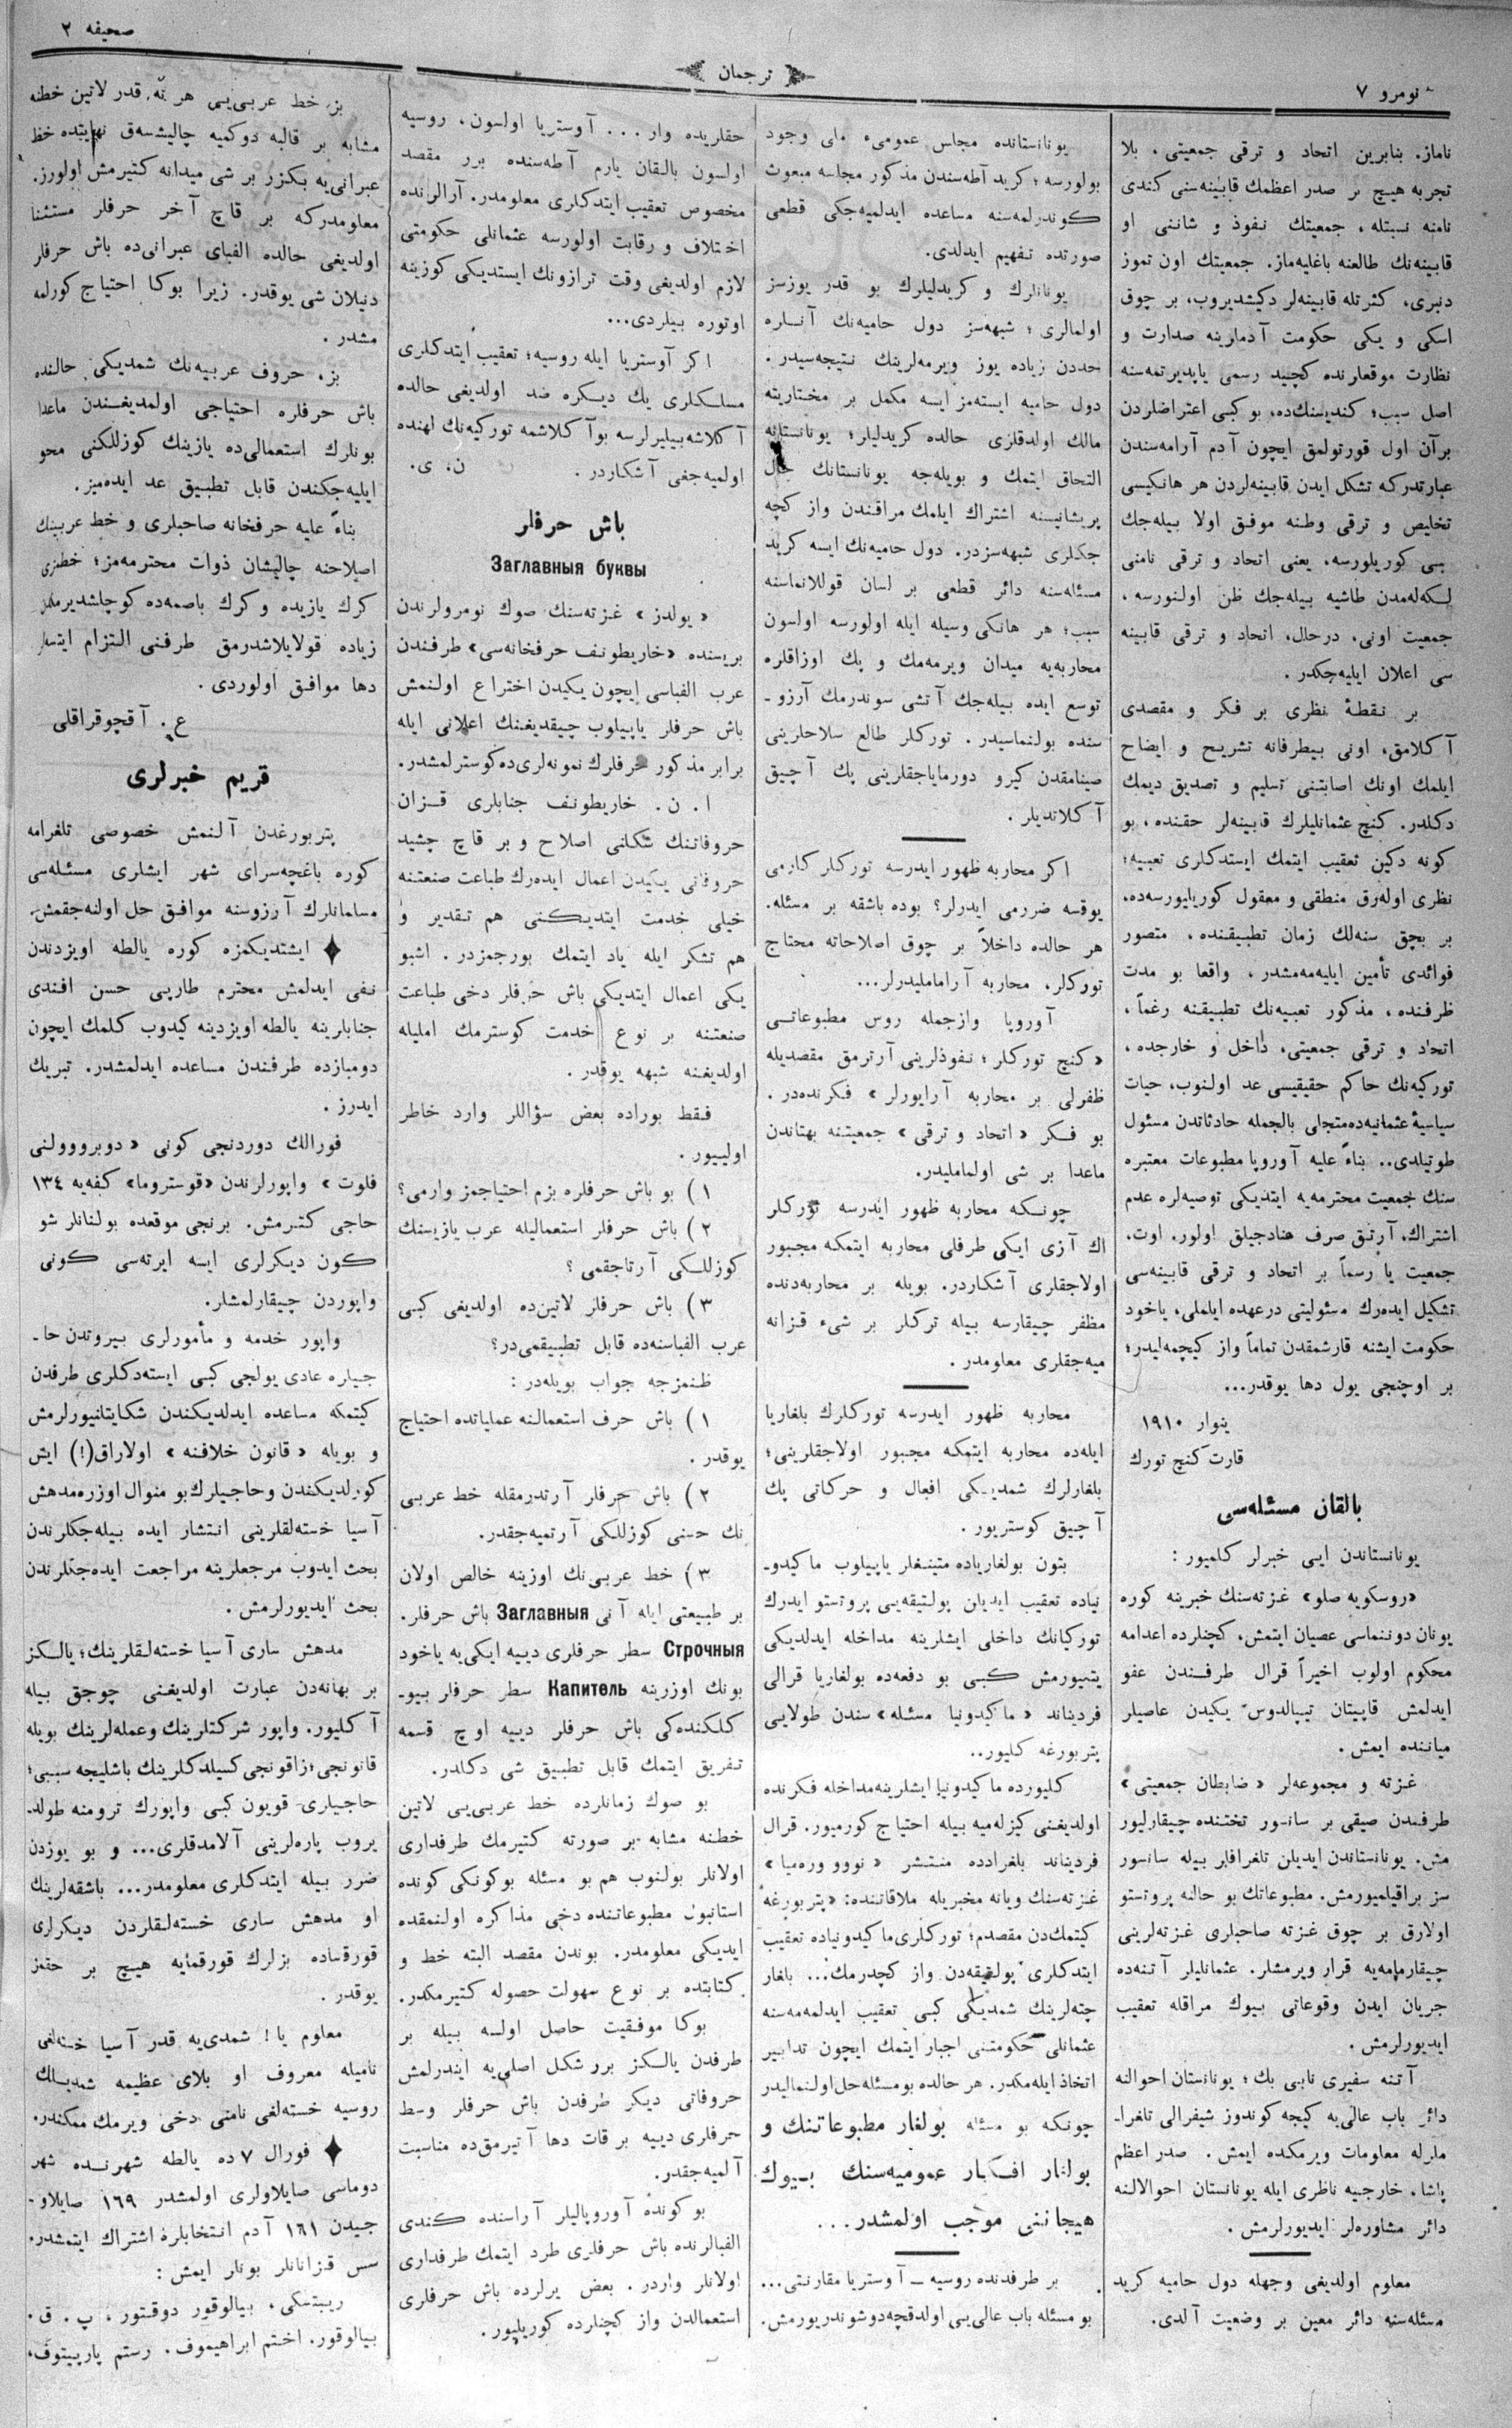 صحیفه ۲
ترجمان
نومرو ۷
ناماز. بنابرین اتحاد و ترقی جمعیتی، بلا
تجربه هیچ بر صدر اعظمك قابینه‌سنی كندی
نامنه نسبتله، جمعیتك نفوذ و شاننی او
قابینه‌نك طالعنه باغلیه‌ماز. جمعیتك اون تموز
دنبری، كثرتله قابینه‌لر دكیشدیروب، بر چوق
اسكی و یكی حكومت آدمارینه صدارت و
نظارت موقعارنده كچید رسمی یاپدیرتمه‌سنه
اصل سبب؛ كندیسنك‌ده، بو كبی اعتراضلردن
برآن اول قورتولمق ایچون آدم آرامه‌سندن
عبارتدركه تشكل ایدن قابینه‌لردن هر هانكیسی
تخلیص و ترقی وطنه موفق اولا بیله‌جك
كبی كوریلورسه، یعنی اتحاد و ترقی نامنی
لكه‌له‌مدن طاشیه بیله‌جك ظن اولنورسه،
جمعیت اونی، درحال، اتحاد و ترقی قابینه
سی اعلان ایلیه‌جكدر.
بر نقطۀ نظری بر فكر و مقصدی
آكلامق، اونی بیطرفانه تشریح و ایضاح
ایلمك اونك اصابتنی تسلیم و تصدیق دیمك
دكلدر. كنج عثمانلیلرك قابینه‌لر حقنده، بو
كونه دكین تعقیب ایتمك ایستدكلری تعبیه؛
نظری اوله‌رق منطقی و معقول كوریلیورسه‌ده،
بر بچق سنه‌لك زمان تطبیقنده، متصور
فوائدی تأمین ایلیه‌مه‌مشدر، واقعا بو مدت
ظرفنده، مذكور تعبیه‌نك تطبیقنه رغماً،
اتحاد و ترقی جمعیتی، داخل و خارجده،
توركیه‌نك حاكم حقیقیسی عد اولنوب، حیات
سیاسیۀ عثمانیه‌ده متجلی بالجمله حادثاتدن مسئول
طوتیلدی.. بناءً علیه آوروپا مطبوعات معتبره
سنك جمعیت محترمه‌یه ایتدیكی توصیه‌لره عدم
اشتراك، آرتق صرف عنادجیلق اولور. اوت،
جمعیت یا رسماً بر اتحاد و ترقی قابینه‌سی
تشكیل ایده‌رك مسئولیتی درعهده ایلملی، یاخود
حكومت ایشنه قارشمقدن تماماً واز كیچمه‌لیدر؛
بر اوچنجی یول دها یوقدر...
ینوار ۱۹۱۰
قارت كنج تورك
بالقان مسئله‌سی
یونانستاندن ایی خبرلر كلمیور:
«روسكویه صلو» غزته‌سنك خبرینه كوره
یونان دوننماسی عصیان ایتمش، كچنلرده اعدامه
محكوم اولوب اخیراً قرال طرفندن عفو
ایدلمش قاپیتان تیپالدوس یكیدن عاصیلر
میاننده ایمش.
غزته و مجموعه‌لر «ضابطان جمعیتی»
طرفندن صیقی بر سانسور تختنده چیقارلیور
مش. یونانستاندن ایدیلن تلغرافلر بیله سانسور
سز براقیلمیورمش. مطبوعاتك بو حالنه پروتستو
اولارق بر چوق غزته صاحبلری غزته‌لرینی
چیقارمامه‌یه قرار ویرمشلر. عثمانلیلر آتنه‌ده
جریان ایدن وقوعاتی بیوك مراقله تعقیب
ایدیورلرمش.
آتنه سفیری نابی بك؛ یونانستان احوالنه
دائر باب عالی‌یه كیجه كوندوز شیفرالی تلغرا-
ملرله معلومات ویرمكده ایمش. صدر اعظم
پاشا، خارجیه ناظری ایله یونانستان احوالالنه
دائر مشاوره‌لر ایدیورلرمش.
معلوم اولدیغی وجهله دول حامیه كرید
مسئله‌سنه دائر معین بر وضعیت آلدی.
یونانستانده مجلس عمومیء ملی وجود
بولورسه؛ كرید آطه‌سندن مذكور مجلسه مبعوث
كوندرلمه‌سنه مساعده ایدلمیه‌جكی قطعی
صورتده تفهیم ایدلدی.
یونانلرك و كریدلیلرك بو قدر یوزسز
اولمالری؛ شبهه‌سز دول حامیه‌نك آنلره
حددن زیاده یوز ویرمه‌لرینك نتیجه‌سیدر.
دول حامیه ایسته‌مز ایسه مكمل بر مختاریته
مالك اولدقلری حالده كریدلیلر؛ یونانستانه
التحاق ایتمك و بویله‌جه یونانستانك حال
پریشانیسنه اشتراك ایلمك مراقندن واز كچه
جكلری شبهه‌سزدر. دول حامیه‌نك ایسه كرید
مسئله‌سنه دائر قطعی بر لسان قوللانماسنه
سبب؛ هر هانكی وسیله ایله اولورسه اولسون
محاربه‌یه میدان ویرمه‌مك و پك اوزاقلره
توسع ایده بیله‌جك آتشی سوندرمك آرزو-
سنده بولنماسیدر. توركلر طالع سلاحلرینی
صینامقدن كیرو دورمایاجقلرینی پك آچیق
آكلاتدیلر.
اكر محاربه ظهور ایدرسه توركلر كارمی
یوقسه ضررمی ایدرلر؟ بوده باشقه بر مسئله.
هر حالده داخلاً بر چوق اصلاحاته محتاج
توركلر، محاربه آرامامليدرلر...
آوروپا وازجمله روس مطبوعاتی
«كنج توركلر؛ نفوذلرینی آرترمق مقصدیله
ظفرلی بر محاربه آرایورلر» فكرنده‌در.
بو فكر «اتحاد و ترقی» جمعیتنه بهتاندن
ماعدا بر شی اولماملیدر.
چونكه محاربه ظهور ایدرسه توركلر
اك آزی ایكی طرفلی محاربه ایتمكه مجبور
اولاجقلری آشكاردر. بویله بر محاربه‌دنده
مظفر چیقارسه بیله تركلر بر شیء قزانه
میه‌جقلری معلومدر.
محاربه ظهور ایدرسه توركلرك بلغاریا
ایله‌ده محاربه ایتمكه مجبور اولاجقلرینی؛
بلغارلرك شمدیكی افعال و حركاتی پك
آچیق كوستریور.
بتون بولغاریاده متینغلر یاپیلوب ماكیدو-
نیاده تعقیب ایدیلن پولتیقه‌یی پروتستو ایدرك
توركیانك داخلی ایشلرینه مداخله ایدلدیكی
یتمیورمش كبی بو دفعه‌ده بولغاریا قرالی
فردیناند «ماكیدونیا مسئله» سندن طولایی
پتربورغه كلیور..
كلیورده ماكیدونیا ایشلرینه مداخله فكرنده
اولدیغنی كیزله‌میه بیله احتیاج كورمیور. قرال
فردیناند بلغرادده منتشر «نووو وره‌میا»
غزته‌سنك ویانه مخبریله ملاقاتنده: «پتربورغه
كیتمك‌دن مقصدم؛ توركلری ماكیدونیاده تعقیب
ایتدكلری پولتیقه‌دن واز كچدرمك... بلغار
چته‌لرینك شمدیكی كبی تعقیب ایدلمه‌مه‌سنه
عثمانلی حكومتنی اجبار ایتمك ایچون تدابیر
اتخاذ ایله‌مكدر. هر حالده بو مسئله حل اولنمالیدر
چونكه بو مسئله بولغار مطبوعاتنك و
بولغار افكار عمومیه‌سنك بیوك
هیجاننی موجب اولمشدر...
بر طرفدنده روسیه ــ آوستریا مقارنتی...
بو مسئله باب عالی‌یی اولدقچه دوشوندریورمش.
حقلریده وار... آوستریا اولسون، روسیه
اولسون بالقان یارم آطه‌سنده برر مقصد
مخصوص تعقیب ایتدكلری معلومدر. آرالرنده
اختلاف و رقابت اولورسه عثمانلی حكومتی
لازم اولدیغی وقت ترازونك ایستدیكی كوزینه
اوتوره بیلردی...
اكر آوستریا ایله روسیه؛ تعقیب ایتدكلری
مسلكلری یك دیكره ضد اولدیغی حالده
آكلاشه‌بیلیرلرسه بوآكلاشمه توركیه‌نك لهنده
اولمیه‌جغی آشكاردر.
ن. ی.
باش حرفلر
Заглавныя буквы
«یولدز» غزته‌سنك صوك نومرولرندن
بریسنده «خاریطونف حرفخانه‌سی» طرفندن
عرب الفباسی ایچون یكیدن اختراع اولنمش
باش حرفلر یاپیلوب چیقدیغنك اعلانی ایله
برابر مذكور حرفلرك نمونه‌لری‌ده كوسترلمشدر.
ا. ن. خاریطونف جنابلری قزان
حروفاتنك شكلنی اصلاح و بر قاچ چشید
حروفاتی یكیدن اعمال ایده‌رك طباعت صنعتنه
خیلی خدمت ایتدیكنی هم تقدیر و
هم تشكر ایله یاد ایتمك بورجمزدر. اشبو
یكی اعمال ایتدیكی باش حرفلر دخی طباعت
صنعتنه بر نوع خدمت كوسترمك املیله
اولدیغنه شبهه یوقدر.
فقط بوراده بعض سؤاللر وارد خاطر
اولییور.
۱) بو باش حرفلره بزم احتیاجمز وارمی؟
۲) باش حرفلر استعمالیله عرب یازیسنك
كوزللكی آرتاجقمی؟
۳) باش حرفلر لاتین‌ده اولدیغی كبی
عرب الفباسنه‌ده قابل تطبیقمی‌در؟
ظنمزجه جواب بویله‌در:
۱) باش حرف استعمالنه عملیاتده احتیاج
یوقدر.
۲) باش حرفلر آرتدرمقله خط عربی
نك حسنی كوزللكی آرتمیه‌جقدر.
۳) خط عربی‌نك اوزینه خالص اولان
بر طبیعتی ایله آنی Заглавныя باش حرفلر.
Строчныя سطر حرفلری دییه ایكی‌یه یاخود
بونك اوزرینه Капитель سطر حرفلر بیو-
كلكنده‌كی باش حرفلر دییه اوچ قسمه
تفریق ایتمك قابل تطبیق شی دكلدر.
بو صوك زمانلرده خط عربی‌یی لاتین
خطنه مشابه بر صورته كتیرمك طرفداری
اولانلر بولنوب هم بو مسئله بوكونكی كونده
استانبول مطبوعاتنده دخی مذاكره اولنمقده
ایدیكی معلومدر. بوندن مقصد البته خط و
كتابتده بر نوع سهولت حصوله كتیرمكدر.
بوكا موفقیت حاصل اولسه بیله بر
طرفدن یالكز برر شكل اصلی‌یه ایندرلمش
حروفاتی دیكر طرفدن باش حرفلر وسط
حرفلری دییه بر قات دها آتیرمق‌ده مناسبت
آلمیه‌جقدر.
بو كونده آوروپالیلر آراسنده كندی
الفبالرنده باش حرفلری طرد ایتمك طرفداری
اولانلر واردر. بعض یرلرده باش حرفلری
استعمالدن واز كچنلرده كوریلیور.
بز، خط عربی‌یی هر نه قدر لاتین خطنه
مشابه بر قالبه دوكمیه چالیشسه‌ق نهایتده خط
عبرانی‌یه بكزر بر شی میدانه كتیرمش اولورز.
معلومدركه بر قاچ آخر حرفلر مستثنا
اولدیغی حالده الفبای عبرانی‌ده باش حرفلر
دنیلان شی یوقدر. زیرا بوكا احتیاج كورلمه
مشدر.
بز، حروف عربیه‌نك شمدیكی حالنده
باش حرفلره احتیاجی اولمدیغندن ماعدا
بونلرك استعمالی‌ده یازینك كوزللكنی محو
ایلیه‌جكندن قابل تطبیق عد ایده‌میز.
بناءً علیه حرفخانه صاحبلری و خط عربینك
اصلاحنه چالیشان ذوات محترمه‌مز؛ خطمزی
كرك یازیده و كرك باصمه‌ده كوچلشدیرمكدن
زیاده قولایلاشدرمق طرفنی التزام ایتسه‌لر
دها موافق اولوردی.
ع. آقچوقراقلی
قریم خبرلری
پتربورغدن آلنمش خصوصی تلغرامه
كوره باغچه‌سرای شهر ایشلری مسئله‌سی
مسلمانلرك آرزوسنه موافق حل اولنه‌جقمش.
ایشتدیكمزه كوره یالطه اویزدندن
نفی ایدلمش محترم طارپی حسن افندی
جنابلرینه یالطه اویزدینه كیدوب كلمك ایچون
دومبازده طرفندن مساعده ایدلمشدر. تبریك
ایدرز.
فورالك دوردنجی كونی «دوبروولنی
فلوت» واپورلرندن «قوستروما» كفه‌یه ۱۳٤
حاجی كترمش. برنجی موقعده بولنانلر شو
كون دیكرلری ایسه ایرته‌سی كونی
واپوردن چیقارلمشلر.
واپور خدمه و مأمورلری بیروتدن حا-
جیلره عادی یولجی كبی ایسته‌دكلری طرفدن
كیتمكه مساعده ایدلدیكندن شكایتلنیورلرمش
و بویله «قانون خلافنه» اولاراق(!) ایش
كورلدیكندن و حاجیلرك بو منوال اوزره مدهش
آسیا خسته‌لقلرینی انتشار ایده بیله‌جكلرندن
بحث ایدوب مرجعلرینه مراجعت ایده‌جكلرندن
بحث ایدیورلرمش.
مدهش ساری آسیا خسته‌لقلرینك؛ یالكز
بر بهانه‌دن عبارت اولدیغنی چوجق بیله
آكلیور. واپور شركتلرینك وعمله‌لرینك بویله
قانونجی؛ زاقونجی كسیلدكلرینك باشلیجه سببی؛
حاجیلری قویون كبی واپورك ترومنه طولد-
یروب پاره‌لرینی آلامدقلری... و بو یوزدن
ضرر بیله ایتدكلری معلومدر... باشقه‌لرینك
او مدهش ساری خسته‌لقلردن دیكرلری
قورقساده بزلرك قورقمایه هیچ بر حقمز
یوقدر.
معلوم یا! شمدی‌یه قدر آسیا خسته‌لغی
نامیله معروف او بلای عظیمه شمدیلك
روسیه خسته‌لغی نامنی دخی ویرمك ممكندر.
فورال ۷ ده یالطه شهرنده شهر
دوماسی صایلاولری اولمشدر ۱۶۹ صایلاو-
جیدن ۱۶۱ آدم انتخابلره اشتراك ایتمشدر.
سس قزانانلر بونلر ایمش:
ریبتسكی، بیالوقور دوقتور، پ. ق.
بیالوقور. اختم ابراهیموف. رستم پارپیتوف،